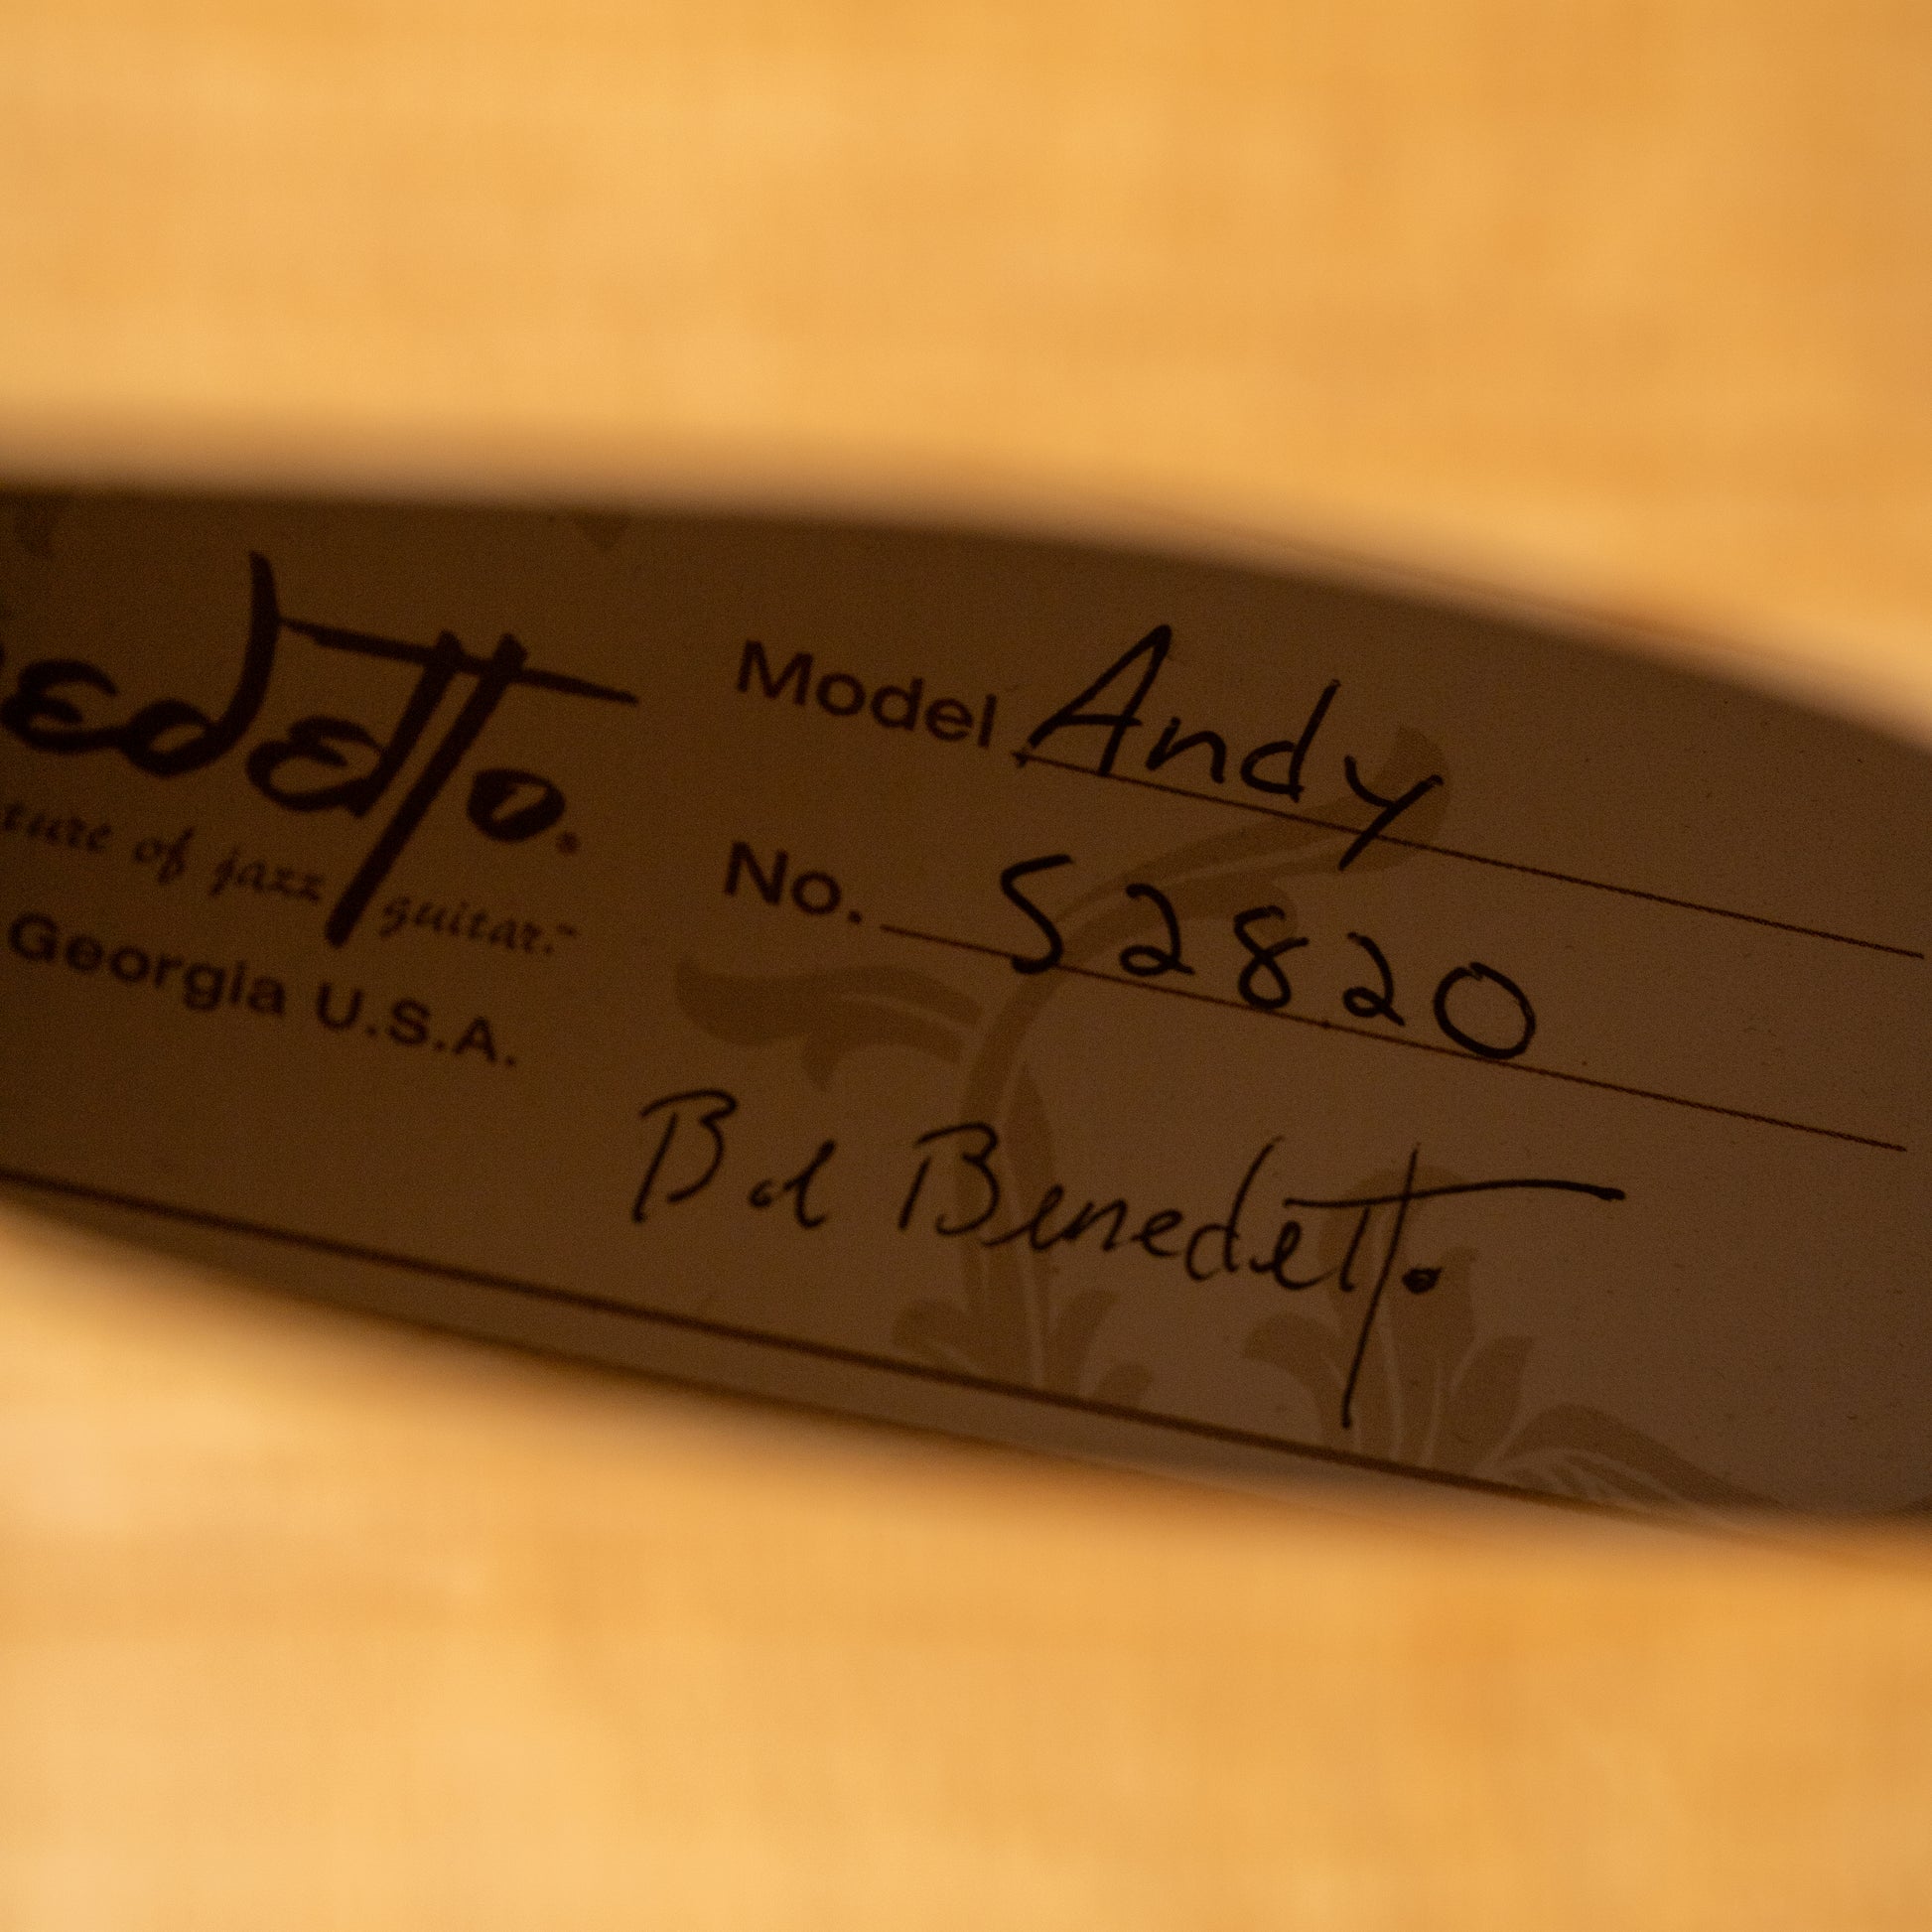 edetto.
ture of jazz guitar.™
Georgia U.S.A.
Model Andy
No. S2820
Bob Benedetto